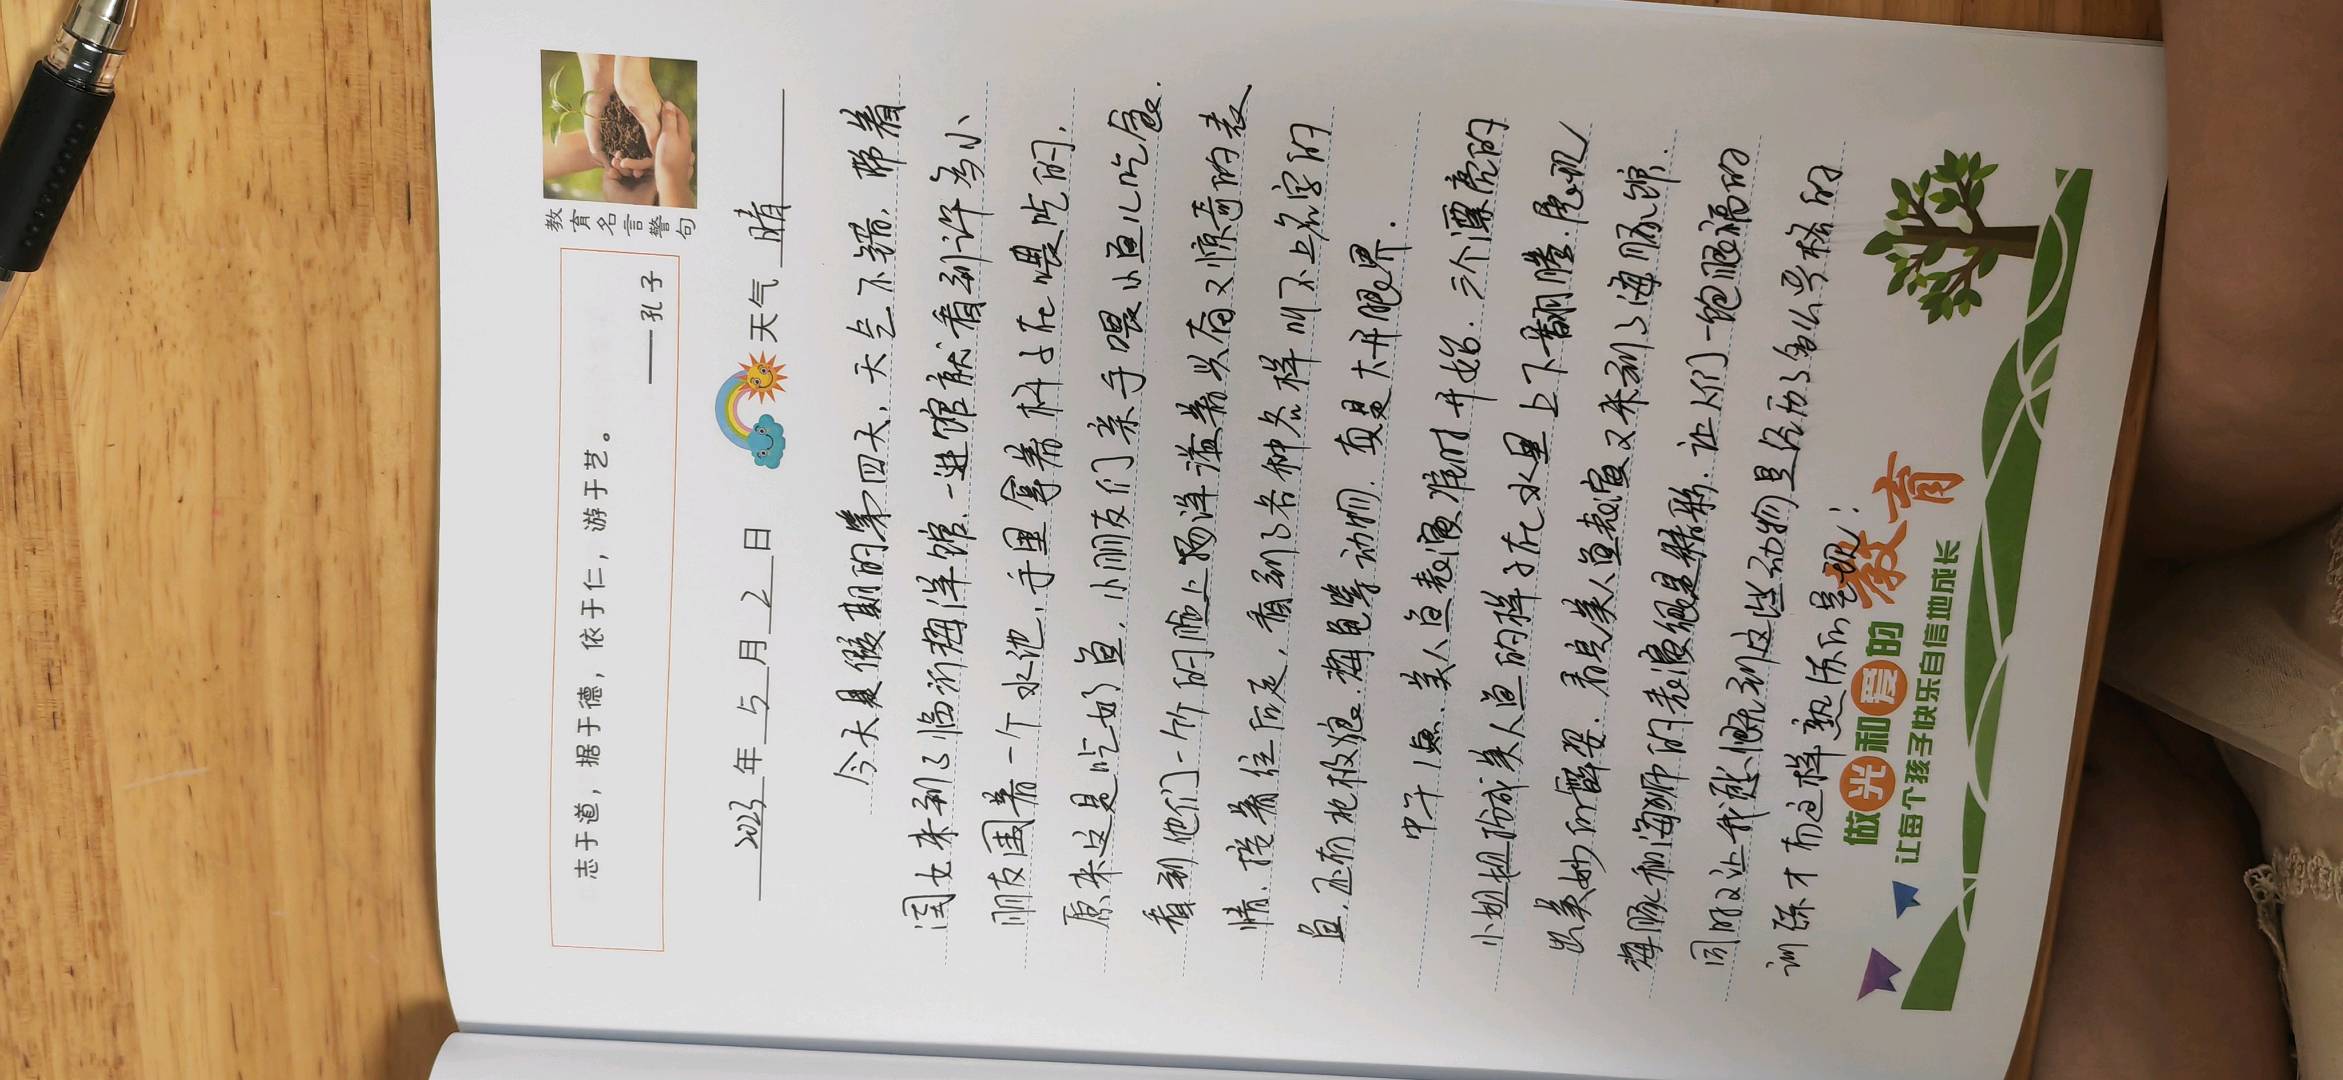 教育名言警句
志于道，据于德，依于仁，游于艺。
——孔子
2023年 5 月 2 日 天气 晴
今天是假期的第四天，天气不错，带着
闺女来到了临沂海洋馆，一进馆就看到许多小
朋友围着一个水池，手里拿着杆子在喂吃的，
原来这是吃奶鱼，小朋友们亲手喂小鱼儿吃食，
看到他们一个个的脸上都洋溢着兴奋又惊奇的表
情，接着往后走，看到了各种各样叫不上名字的
鱼，还有北极狼、海龟等动物，真是大开眼界。
中午1点，美人鱼表演准时开始，三个漂亮的
小姐姐扮成美人鱼的样子在水里上下翻腾，展现
出美妙的舞姿，看完美人鱼表演又来到了海豚馆，
海豚和海狮的表演很是精彩，让人们一饱眼福的
同时又让我感慨到这些动物是经历了多么严格的
训练才有这样熟练的呈现！
做光和爱的教育
让每个孩子快乐自信地成长